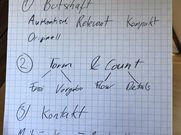 ① Botschaft
Authentisch Relevant Kompakt
Originell
② Form & Count
Flow Details
③ Kontakt